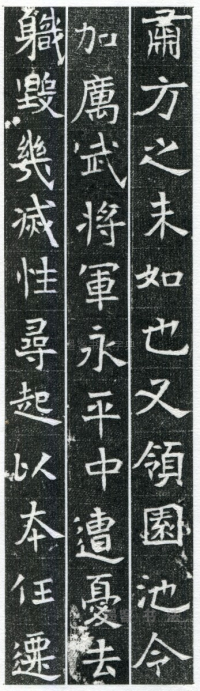 肅方之未如也又領園池令
加厲武將軍永平中遭憂去
職毀幾滅性尋起以本任遝